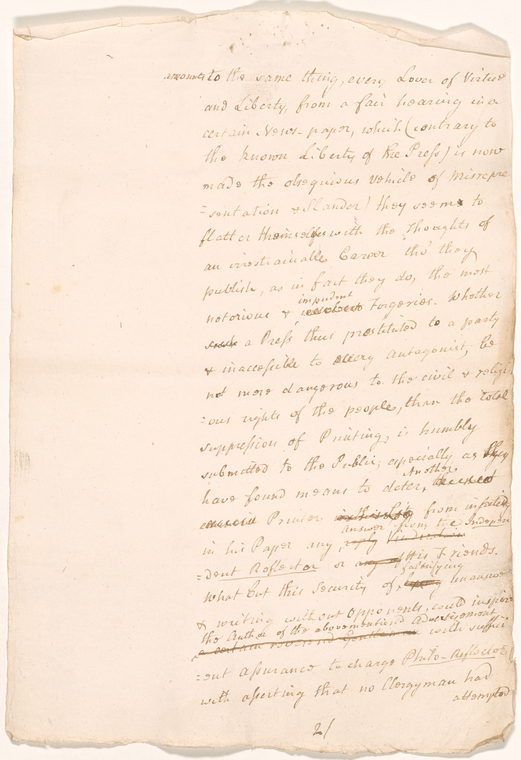 amounts to the same thing, every Lover of Virtue
and Liberty, from a fair hearing in a
certain News-paper, which (contrary to
the known Liberty of the Press) is now
made the obsequious vehicle of misrepre
=sentation & Slander! they seem to
flatter themselves with the Thoughts of
an irrestrainable Career tho' they
publish, as in fact they do, the most
impudent
notorious & Forgeries. Whether
such a Press thus prostituted to a party
& inaccessible to every Antagonist, be
not more dangerous to the civil & religi
=ous rights of the people, than the total
suppression of Printing, is humbly
submitted to the Public; especially as they
Another
have found means to deter,
Printer from inserting
answer from the Indepen
in his Paper any,
=dent Reflector or any of His Friends.
falsifying
What but this security of, unanswer
& writing without Opponents, could inspire
the Author of the abovementiond Advertisement
a certain reverend Gentleman with suffici
=ent assurance to charge Philo-Reflector
with asserting that no Clergyman had
attempted
2/